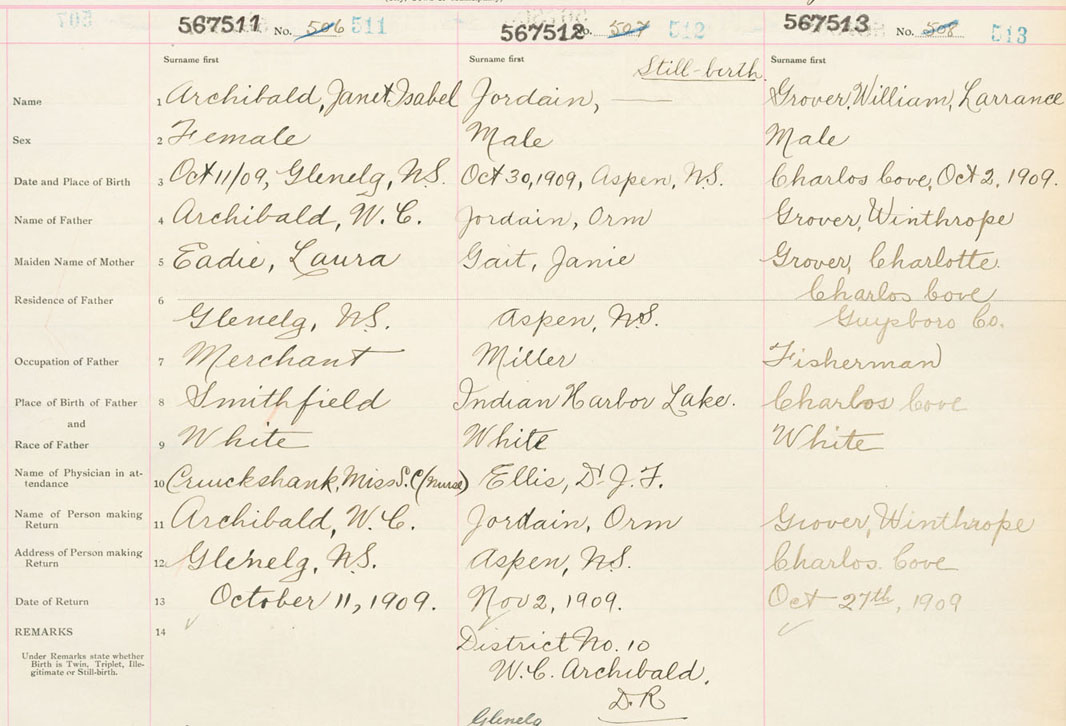 567511 No. 506 511 567512 No. 507 512 567513 No. 508 513
Surname first Surname first Still-birth Surname first
Name 1 Archibald, Janet Isabel Jordain, — Grover, William, Larrance
Sex 2 Female Male Male
Date and Place of Birth 3 Oct 11/09, Glenelg, N.S. Oct 30, 1909, Aspen, N.S. Charlos Cove, Oct 2, 1909.
Name of Father 4 Archibald, W. C. Jordain, Orm Grover, Winthrope
Maiden Name of Mother 5 Eadie, Laura Gait, Janie Grover, Charlotte.
Residence of Father 6 Charlos Cove
Glenelg, N.S. Aspen, N.S. Guysboro Co.
Occupation of Father 7 Merchant Miller Fisherman
Place of Birth of Father 8 Smithfield Indian Harbor Lake. Charlos Cove
and
Race of Father 9 White White White
Name of Physician in at-
tendance 10 Cruuckshank, Miss S. C (Nurse) Ellis, Dr. J. F.
Name of Person making
Return 11 Archibald, W. C. Jordain, Orm Grover, Winthrope
Address of Person making
Return 12 Glenelg, N.S. Aspen, N.S. Charlos. Cove
Date of Return 13 October 11, 1909. Nov 2, 1909. Oct 27th, 1909
REMARKS 14 District No. 10
Under Remarks state whether
Birth is Twin, Triplet, Ille-
gitimate or Still-birth.
W. C. Archibald.
D. R
Glenelg